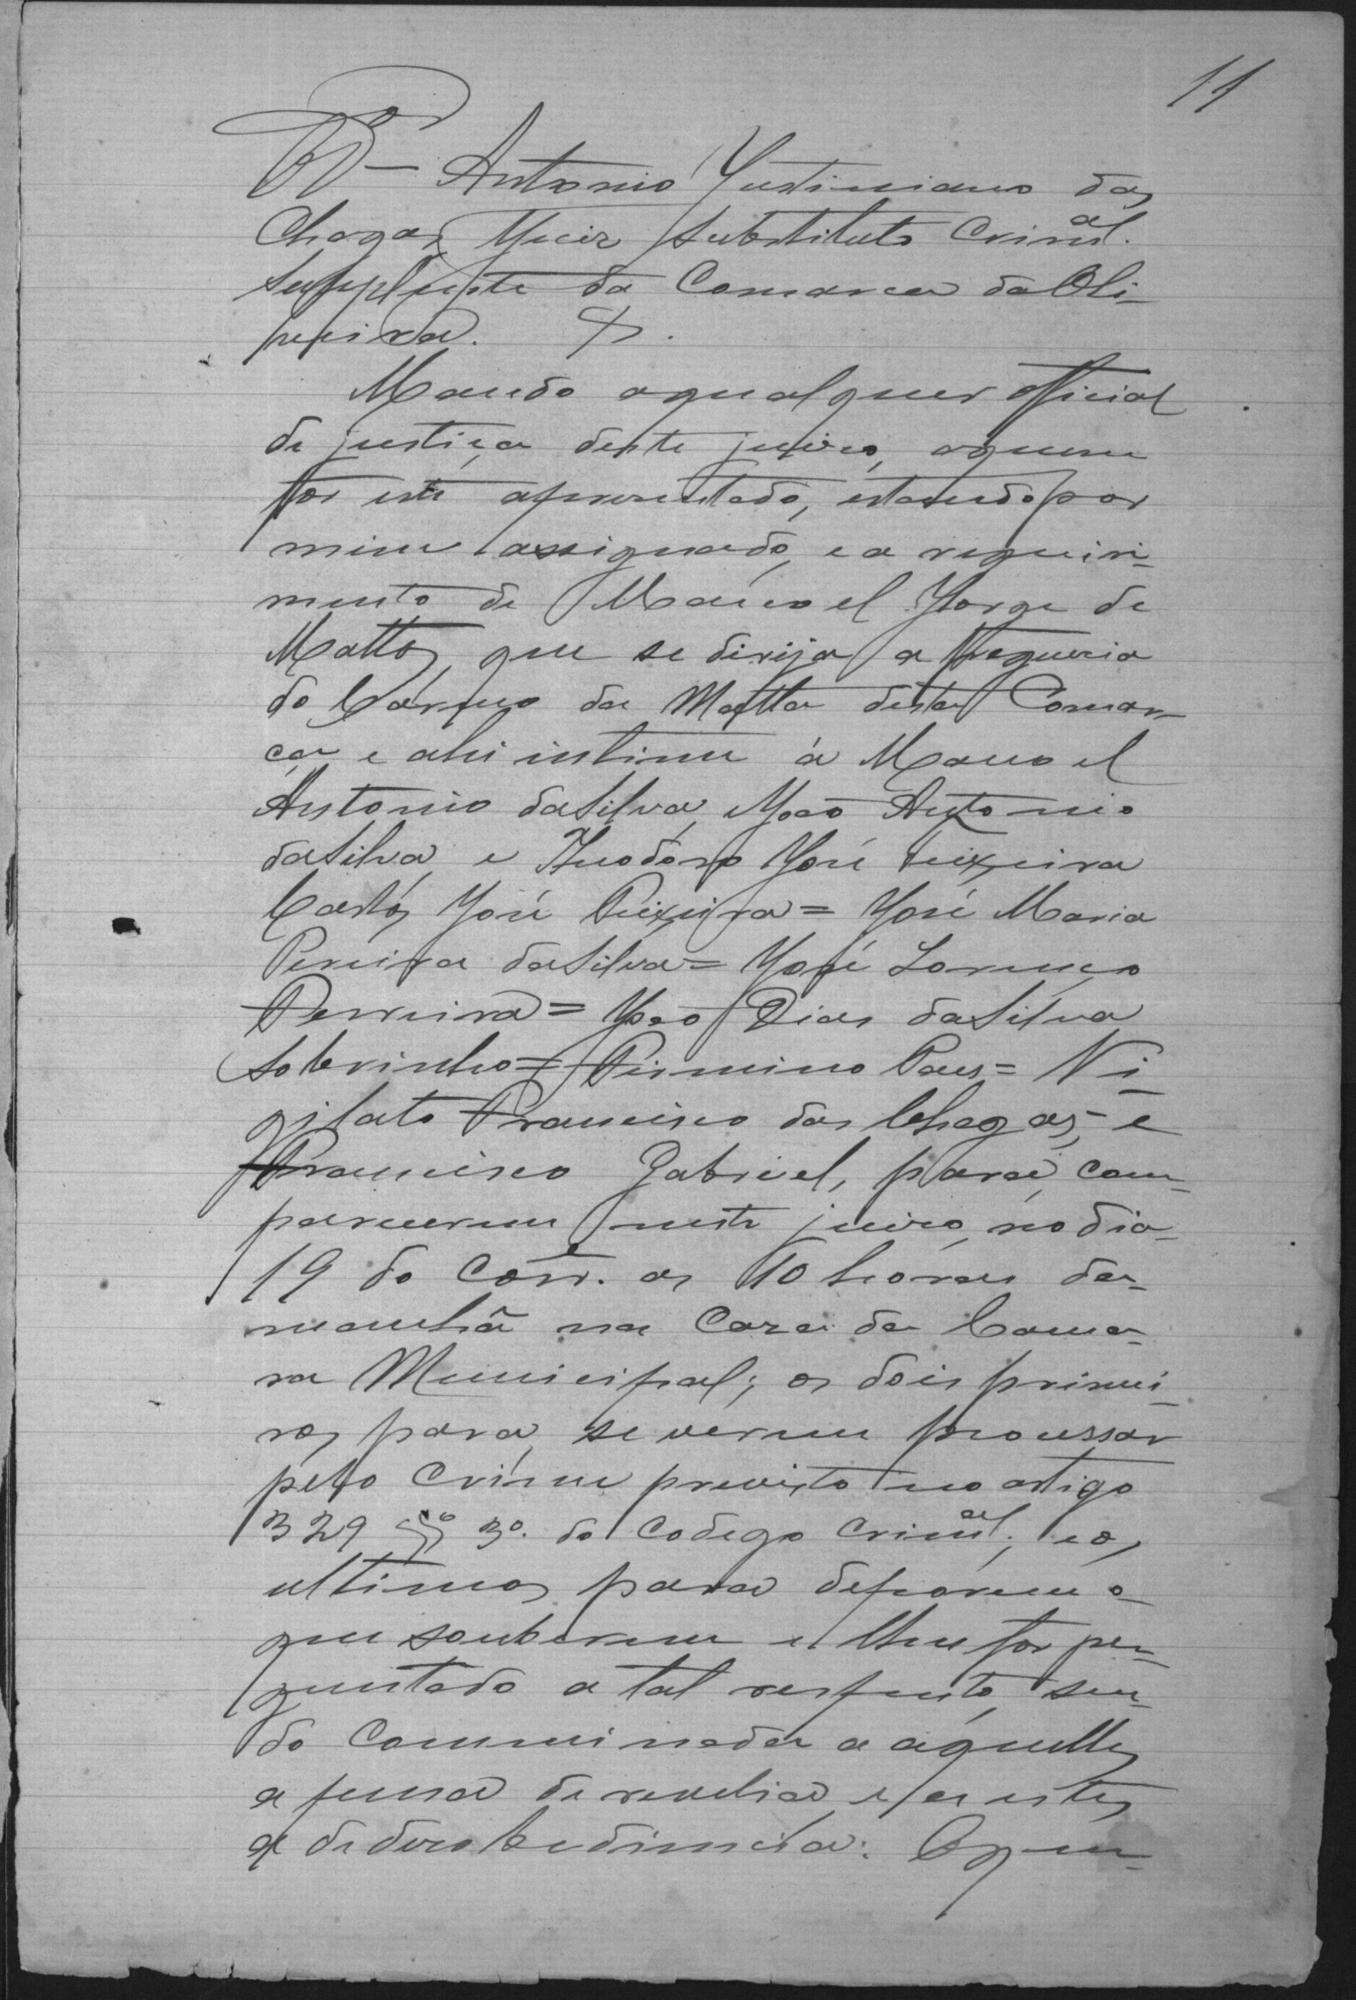 11
Antonio Justiniano das
Chagas, Juiz Substituto Crim.al
Supplente da Comarca da Oli-
veira. &.
Mando aqualquer official
de justiça deste juiso, aquem
for este apresentado, estando por
mim assignado, e a requiri-
mento de Manoel Jorge de
Mattos, que se dirija a Freguesia
do Carmo da Matta desta Comar-
ca e ahi intime à Manoel
Antonio da Silva, João Antonio
da Silva, e Theodoro José Teixeira
Carlos José Teixeira = José Maria
Pereira da Silva = José Lorenço
Ferreira = João Dias da Silva
Sobrinho = Firmino Paes = Vi-
gilato Francisco das Chagas, e
Francisco Gabriel, para com-
parecerem neste juiso, no dia
19 do Corr.e as 10 horas da
manhã na Caza da Cama-
ra Municipal; os dois primei-
ros para se verem processar
pelo Crime previsto no artigo
329 § 3º. do Codego Crim.al, e os
ultimos para deporem o
que souberem e lhes for per-
guntado a tal respeito, sen-
do Comminada a aquelles
a pena de revelia e a estes
a de desobediencia. O que